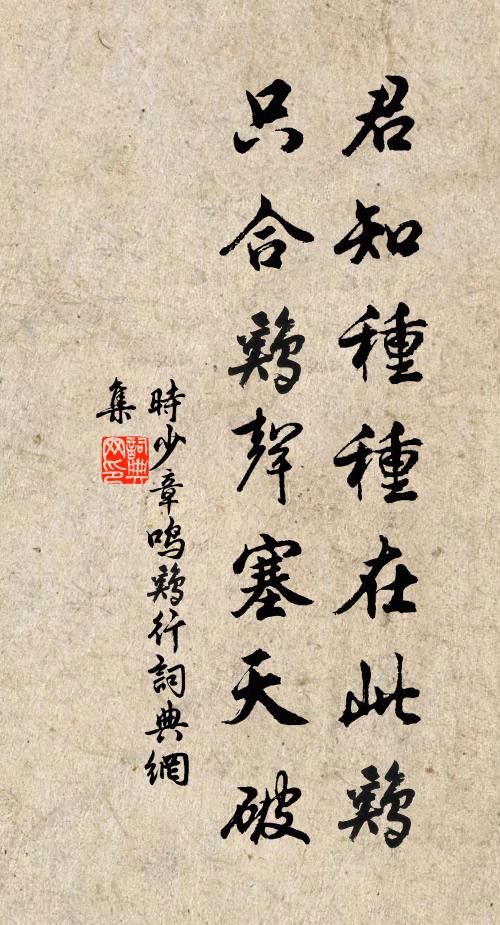 君知種種在此鷄
只合鷄聲塞天破
時少章鳴鷄行詞典網
集
詞典網印